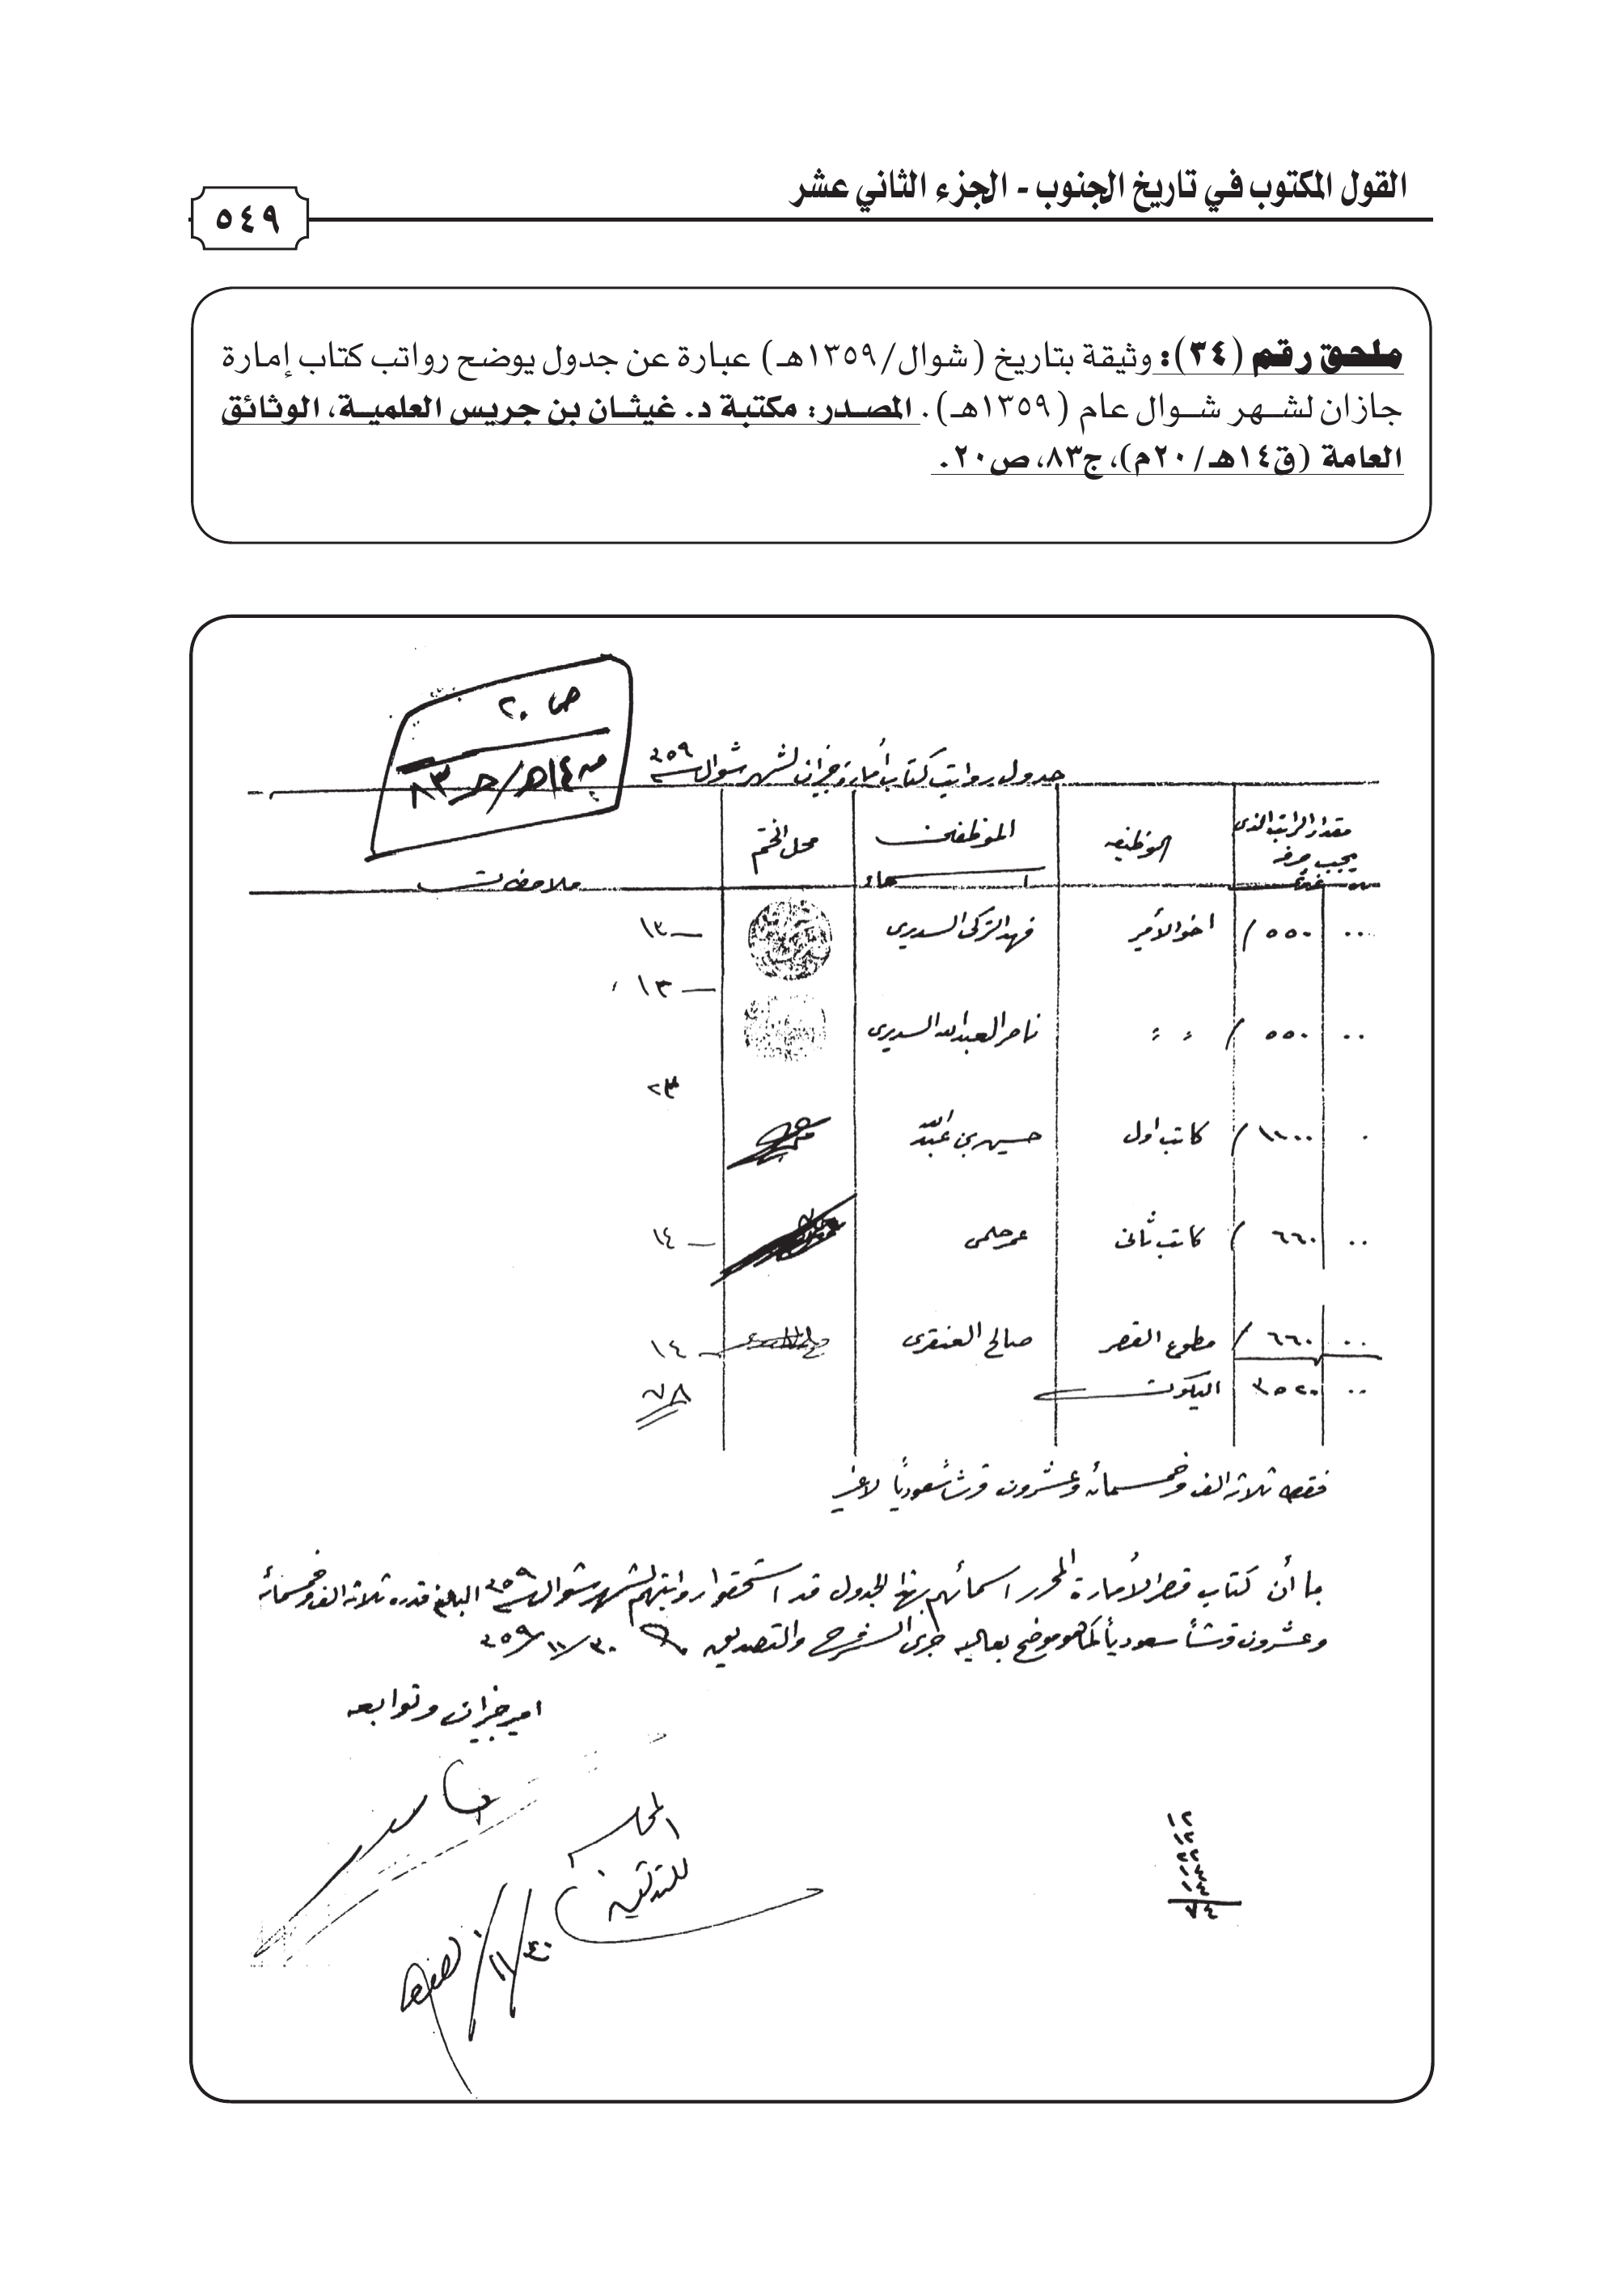 القول المكتوب في تاريخ الجنوب - الجزء الثاني عشر
٥٤٩
ملحق رقم (٣٤): وثيقة بتاريخ (شوال/١٣٥٩هـ) عبارة عن جدول يوضح رواتب كتاب إمارة
جازان لشهر شوال عام (١٣٥٩هـ). المصدر: مكتبة د. غيثان بن جريس العلمية، الوثائق
العامة (ق١٤هـ/٢٠م)، ج٨٣، ص٢٠.
ص ٢٠
ق١٤هـ/ج٨٣
جدول رواتب كتاب أمارة جيزان لشهر شوال سنة ٣٥٩
مقدار الراتب الذي يجب صرفه الوظيفه اسماء الموظفين محل الختم ملاحظات
٠٠ ٥٥٠ / اخو الأمير فهد التركي السديري ١٣
١٣
٠٠ ٥٥٠ / ناصر العبدالله السديري
٢٣
٠ ١١٠٠ / كاتب اول حسين بن عبدالله
٠٠ ٦٦٠ / كاتب ثاني عمر حلمي ١٤
٠٠ ٦٦٠ / مطوع القصر صالح العنقري ١٤
٠٠ ٣٥٢٠ اليكون ٧٨
فقط ثلاثة الف وخمسمائه وعشرون قرشاً سعودياً لاغير
بما أن كتاب قصر الأمارة المحرر اسمائهم بهذا الجدول قد استحقوا رواتبهم لشهر شوال سنة ٣٥٩ البالغ قدره ثلاثة الف وخمسمائة
وعشرون قرشاً سعودياً كما هو موضح بعاليه جرى الشرح والتصديق ٣٠/١١/٣٥٩
امير جيزان وتوابعه
٧٤